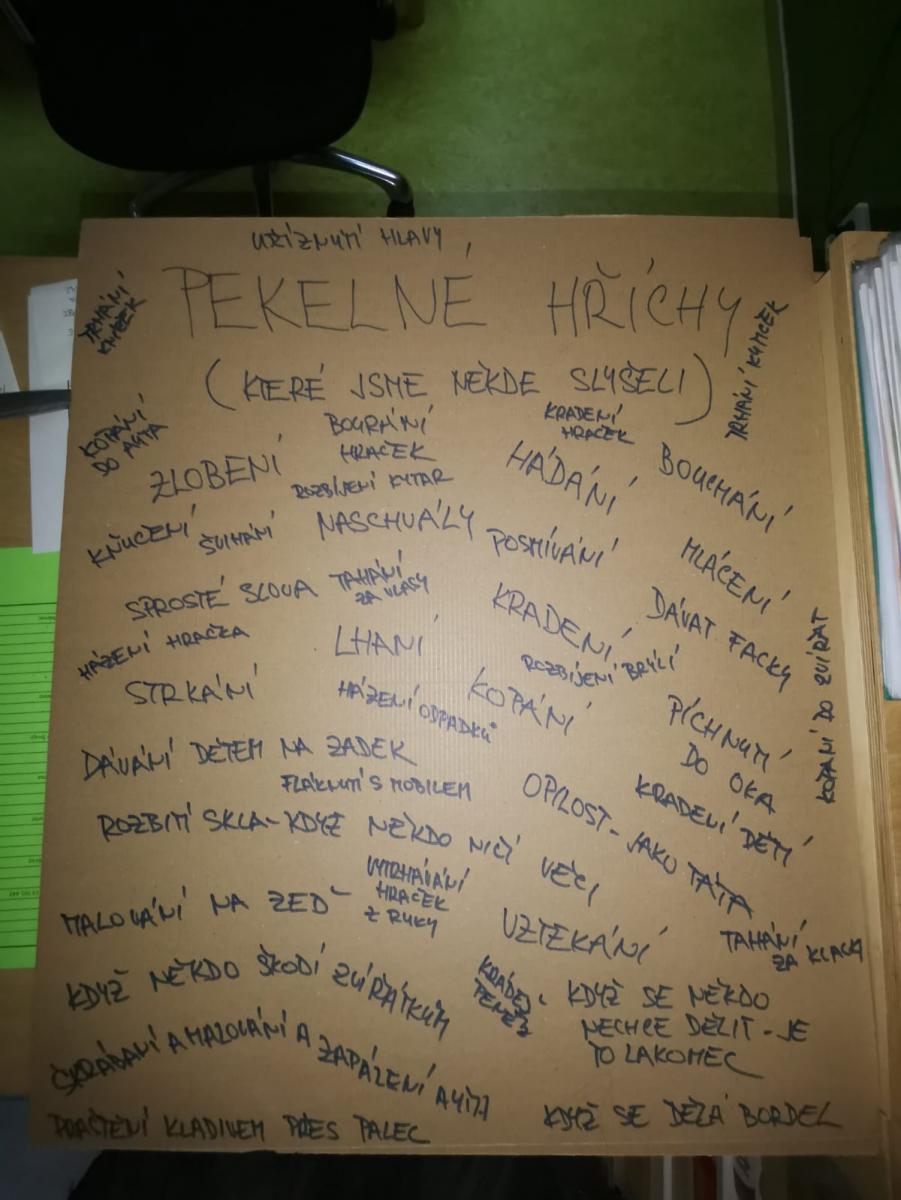 UŘÍZNUTÍ HLAVY,
PEKELNÉ HŘÍCHY
(KTERÉ JSME NĚKDE SLYŠELI)
TRHÁNÍ
KNÍŽEK
TRHÁNÍ KYTIČEK
KOPÁNÍ
DO AUTA
ZLOBENÍ
BOURÁNÍ
HRAČEK
ROZBÍJENÍ KYTAR
KRADENÍ
HRAČEK
HÁDÁNÍ
BOUCHÁNÍ
KŇUČENÍ
ŠVIHÁNÍ
NASCHVÁLY
POSMÍVÁNÍ
MLÁCENÍ
SPROSTÉ SLOVA
TAHÁNÍ
ZA VLASY
KRADENÍ
DÁVAT FACKY
HÁZENÍ HRAČKA
LHANÍ
ROZBÍJENÍ BRÝLÍ
STRKÁNÍ
HÁZENÍ ODPADKŮ
KOPÁNÍ
PÍCHNUTÍ
DO OKA
KOPÁNÍ DO ZVÍŘAT
DÁVÁNÍ DĚTEM NA ZADEK
FLÁKNUTÍ S MOBILEM
OPILOST - JAKO TÁTA
KRADENÍ DĚTÍ
ROZBITÍ SKLA - KDYŽ NĚKDO NIČÍ VĚCI
VYTRHÁVÁNÍ
HRAČEK
Z RUKY
MALOVÁNÍ NA ZEĎ
VZTEKÁNÍ
TAHÁNÍ
ZA
KDYŽ NĚKDO ŠKODÍ ZVÍŘÁTKŮM
KRÁDEŽ
PENĚZ
KDYŽ SE NĚKDO
NECHCE DĚLIT - JE
TO LAKOMEC
ŠKRÁBANÍ A MALOVÁNÍ A ZAPÁLENÍ
PRAŠTĚNÍ KLADIVEM PŘES PALEC
KDYŽ SE DĚLÁ BORDEL